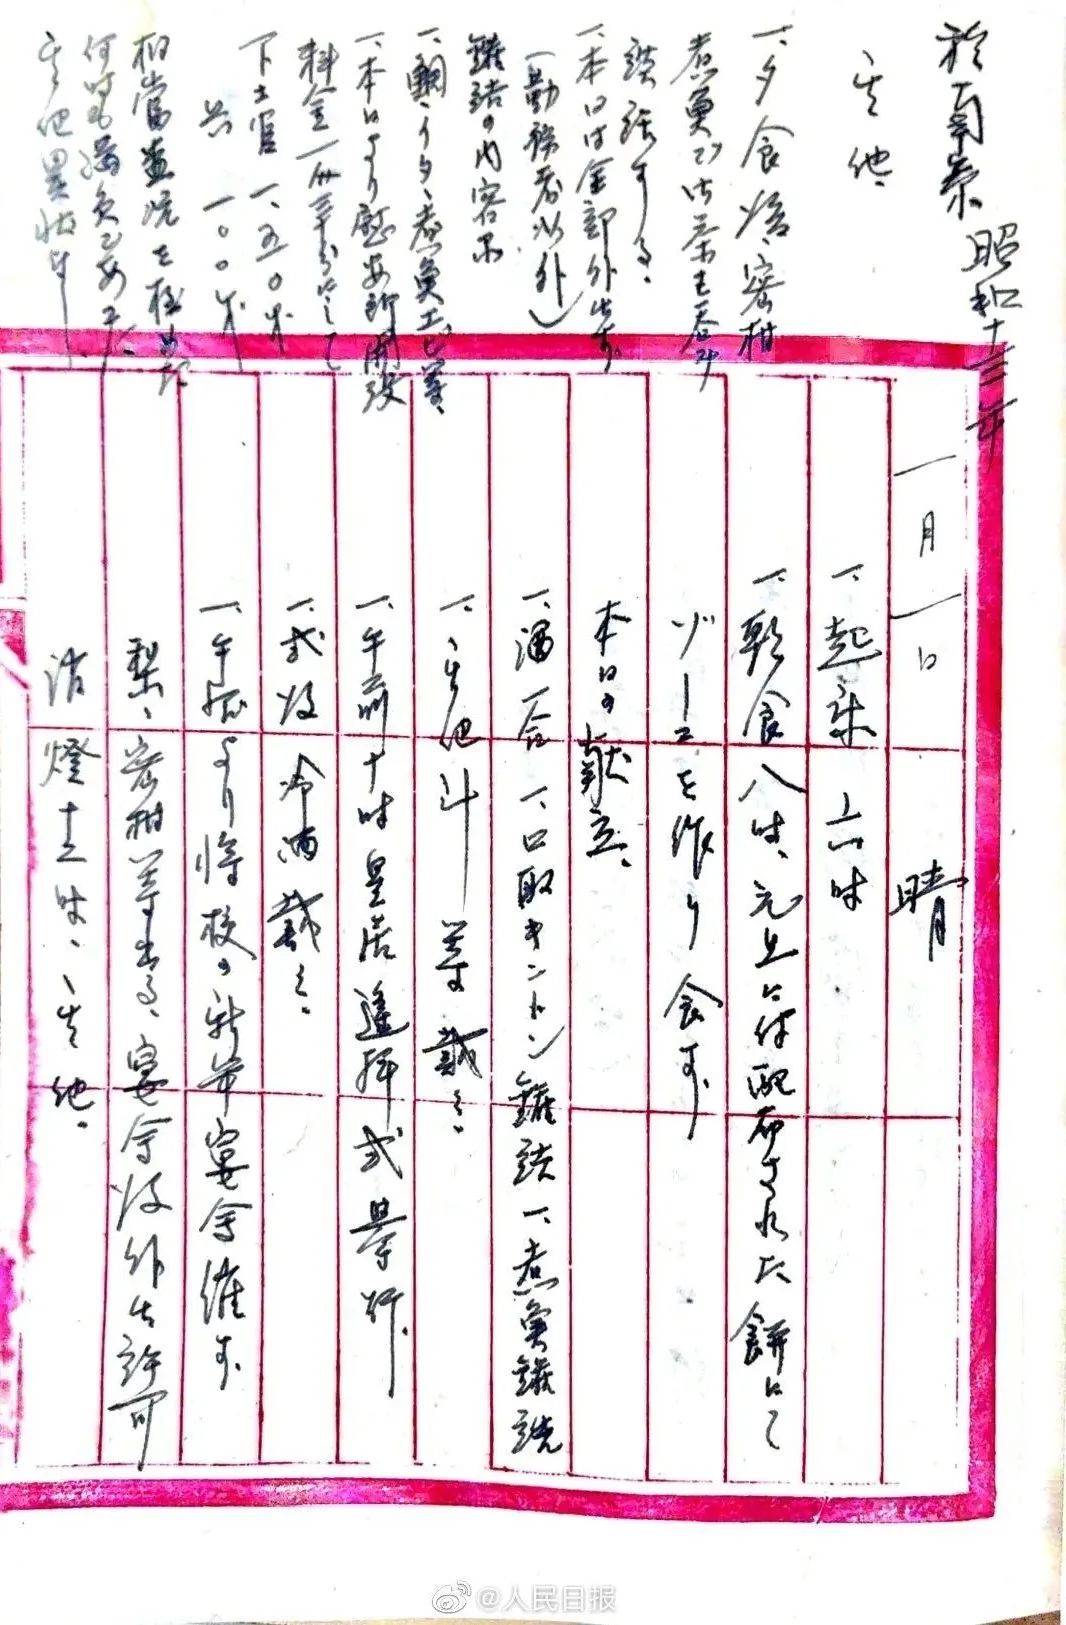 於南京 昭和十三年
一月一日 晴
一、起床 六時
一、朝食八時、元旦に付配布された餅にて
ゾーニを作り食す、
本日の献立、
一、酒一合 一、口取キントン鑵詰 一、煮魚鑵詰
一、其他 等戴く、
一、午前十時皇居遙拝式挙行、
一、式後冷酒戴く、
一、午后より将校の新年宴会催す、
梨、密柑等出る、宴会後外出許可
消燈十二時、其他、
其他、
一、夕食後、密柑
煮魚 御茶を呑み
談話する、
一、本日は全部外出す
(勤務者以外)
鑵詰の内容は
一、鯛、イタタ、煮魚、エビ等、
一、本日より慰安所開設
料金一 三十分にして
下士官 一、五〇銭
兵 一、〇〇銭
相当
何時も満員である、
其他異状なし
@人民日报